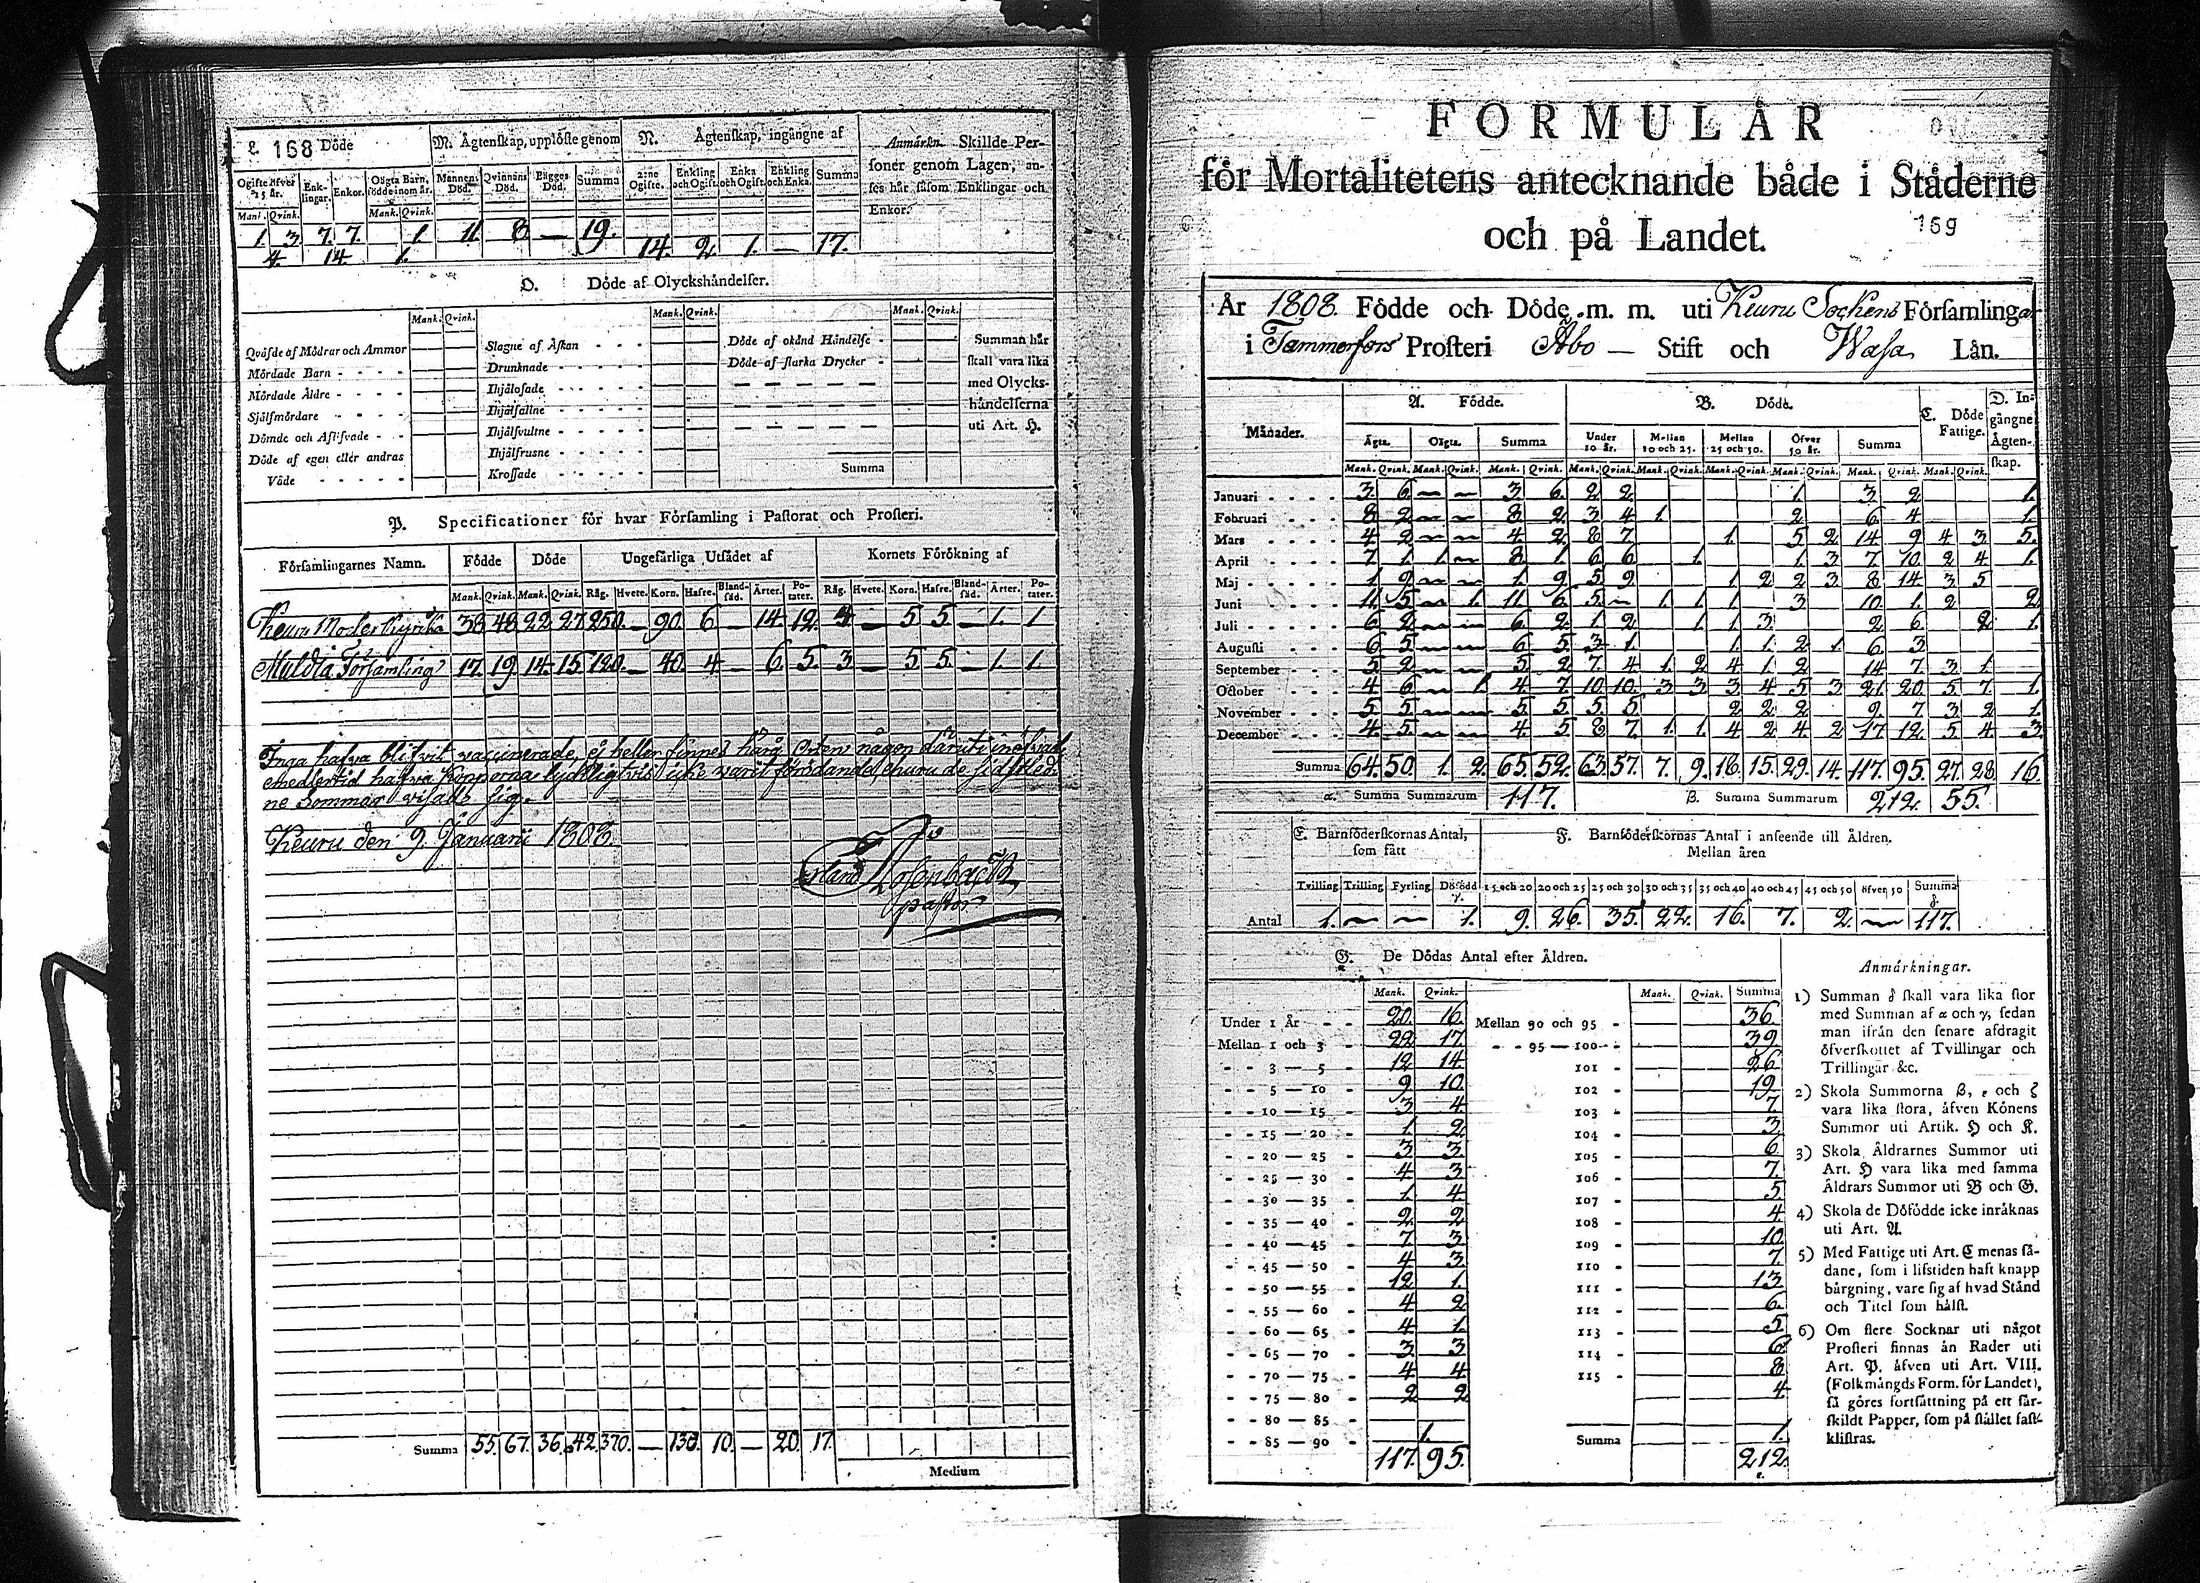 L. 168 Döde
M. Ägtenskap, upplöste genom
N. Ägtenskap, ingångne af
Anmärkn. Skillde Per-
soner genom Lagen, an-
ses här såsom Enklingar och
Enkor.
Ogifte öfver 15 år. Enk-lingar. Enkor. Oägta Barn, födde inom år. Mannens Död. Qvinnans Död. Bägges Död. Summa 2:ne Ogifte. Enkling och Ogift. Enka och Ogift. Enkling och Enka. Summa
Mank. Qvink. Mank. Qvink.
1. 3. 7. 7. 1. 11. 8. — 19. 14. 2. 1. — 17.
4. 14. 1.
O. Döde af Olyckshändelser.
Mank. Qvink. Mank. Qvink. Mank. Qvink.
Qväfde af Mödrar och Ammor
Mördade Barn - - - -
Mördade Äldre - - - -
Sjålfmördare - - - -
Dömde och Aflifvade - -
Döde af egen eller andras
Våde - - - - -
Slagne af Åskan - - - -
Drunknade - - - - - -
Ihjälosade - - - - - -
Ihjälfallne - - - - - -
Ihjälsvultne - - - - -
Ihjälfrusne - - - - -
Krossade - - - - - -
Döde af okänd Händelse -
Döde af starka Drycker -
Summa
Summan här
skall vara lika
med Olycks-
händelserna
uti Art. H.
P. Specificationer för hvar Församling i Pastorat och Prosteri.
Församlingarnes Namn. Födde Döde Ungefärliga Utsädet af Kornets Förökning af
Mank. Qvink. Mank. Qvink. Råg. Hvete. Korn. Hafre. Bland-säd. Ärter. Po-tater. Råg. Hvete. Korn. Hafre. Bland-säd. Ärter. Po-tater.
Keuru Moder Kyrka 38 48 22 27 250. — 90. 6 — 14. 12. 4 — 5 5 — 1. 1
Muldia Församling 17. 19. 14. 15. 120. — 40. 4 — 6. 5. 3 — 5 5. — 1. 1.
Inga hafva blifvit vaccinerade, ej heller finnes här å Orten någon däruti
emedlertid hafva Kopporna lyckligtvis icke varit förödande, ehuru de sidstled-
ne Sommar visadt sig.
Keuru den 9. Januarii 1808.
Erland Rosenback
pastor
Summa 55. 67. 36. 42. 370. — 130. 10. — 20. 17.
Medium
FORMULÄR
för Mortalitetens antecknande både i Städerne
och på Landet.
169
År 1808. Födde och Döde m. m. uti Keuru Sockens Församlingar
i Tammerfors Prosteri Åbo — Stift och Wasa Län.
Månader. A. Födde. B. Döde. C. Döde Fattige. D. In-gångne Ägten-skap.
Ägta. Oägta. Summa Under 10 år. Mellan 10 och 25. Mellan 25 och 50. Öfver 50 år. Summa
Mank. Qvink. Mank. Qvink. Mank. Qvink. Mank. Qvink. Mank. Qvink. Mank. Qvink. Mank. Qvink. Mank. Qvink. Mank. Qvink.
Januari - - - - 3. 6. — — 3. 6. 2 2 1. 3. 2. 1.
Februari - - - - 8 2 — — 8 2. 3 4 1. 2 6. 4. 1.
Mars - - - - 4 2 — — 4 2. 8 7 1. 5 2 14 9 4 3 5.
April - - - - 7 1. 1. — 8 1. 6 6 1. 1. 3 7 10. 2 4 1.
Maj - - - - 1. 9 — — 1. 9. 5 9 1. 2 2 3 8 14 3 5
Juni - - - - 11. 5 — 1. 11. 6 5 — 1. 1. 1. 3 10. 1. 2 2.
Juli - - - - 6 2 — — 6 2 1. 2 1. 1. 3 2 6 2. 1.
Augusti - - - - 6 5 — — 6 5 3 1. 1. 1. 2 1. 6 3
September - - - 5 2 — — 5 2 7 4 1. 2 4 1. 2 14 7 3 1.
October - - - - 4 6 — 1. 4 7. 10 10. 3 3 3 4 5 3 21. 20. 5 7. 1.
November - - - 5 5 — — 5 5 5 5 2 2 2 9 7 3 2 1.
December - - - 4 5 — — 4 5 8 7 1. 1. 4 2 4 2 17 12 5 4 3.
Summa 64. 50. 1. 2. 65. 52. 63. 57. 7. 9. 18. 15. 29. 14. 117. 95. 27. 28 16.
α. Summa Summarum 117. β. Summa Summarum 212. 55.
E. Barnföderskornas Antal, som fått
F. Barnföderskornas Antal i anseende till Åldren.
Mellan åren
Tvilling Trilling Fyrling Dödfödd γ. 15 och 20 20 och 25 25 och 30 30 och 35 35 och 40 40 och 45 45 och 50 öfver 50 Summa δ
Antal 1. — — 1. 9. 26. 35. 22. 16. 7. 2. — 117.
G. De Dödas Antal efter Åldren.
Mank. Qvink. Mank. Qvink. Summa
Under 1 År - - 20. 16. Mellan 90 och 95 - 36.
Mellan 1 och 3 - 22 17. - - 95 — 100 - - 39.
- - 3 — 5 - 12 14. 101 - 26.
- - 5 — 10 - 9 10. 102 - 19.
- - 10 — 15 - 3 4. 103 - 7.
- - 15 — 20 - 1. 2. 104 - 3.
- - 20 — 25 - 3 3. 105 - 6.
- - 25 — 30 - 4 3. 106 - 7.
- - 30 — 35 - 1. 4. 107 - 5.
- - 35 — 40 - 2 2 108 - 4.
- - 40 — 45 - 7. 3. 109 - 10.
- - 45 — 50 - 4 3. 110 - 7.
- - 50 — 55 - 12 1. 111 - 13.
- - 55 — 60 - 4 2 112 - 6.
- - 60 — 65 - 4 1. 113 - 5.
- - 65 — 70 - 3. 3 114 - 6.
- - 70 — 75 - 4 4 115 - 8
- - 75 — 80 - 2 2 4.
- - 80 — 85 -
- - 85 — 90 - 1. Summa 1.
117. 95. 212.
Anmärkningar.
1) Summan δ skall vara lika stor
med Summan af α och γ, sedan
man ifrån den senare afdragit
öfverskottet af Tvillingar och
Trillingar &c.
2) Skola Summorna β, ε och ζ
vara lika stora, äfven Könens
Summor uti Artik. H och K.
3) Skola Åldrarnes Summor uti
Art. H vara lika med samma
Åldrars Summor uti B och G.
4) Skola de Döfödde icke inräknas
uti Art. A.
5) Med Fattige uti Art. C menas så-
dane, som i lifstiden haft knapp
bärgning, vare sig af hvad Stånd
och Titel som hälst.
6) Om flere Socknar uti något
Prosteri finnas än Rader uti
Art. P. äfven uti Art. VIII.
(Folkmängds Form. för Landet),
så göres fortsättning på ett sär-
skildt Papper, som på stället fast-
klistras.